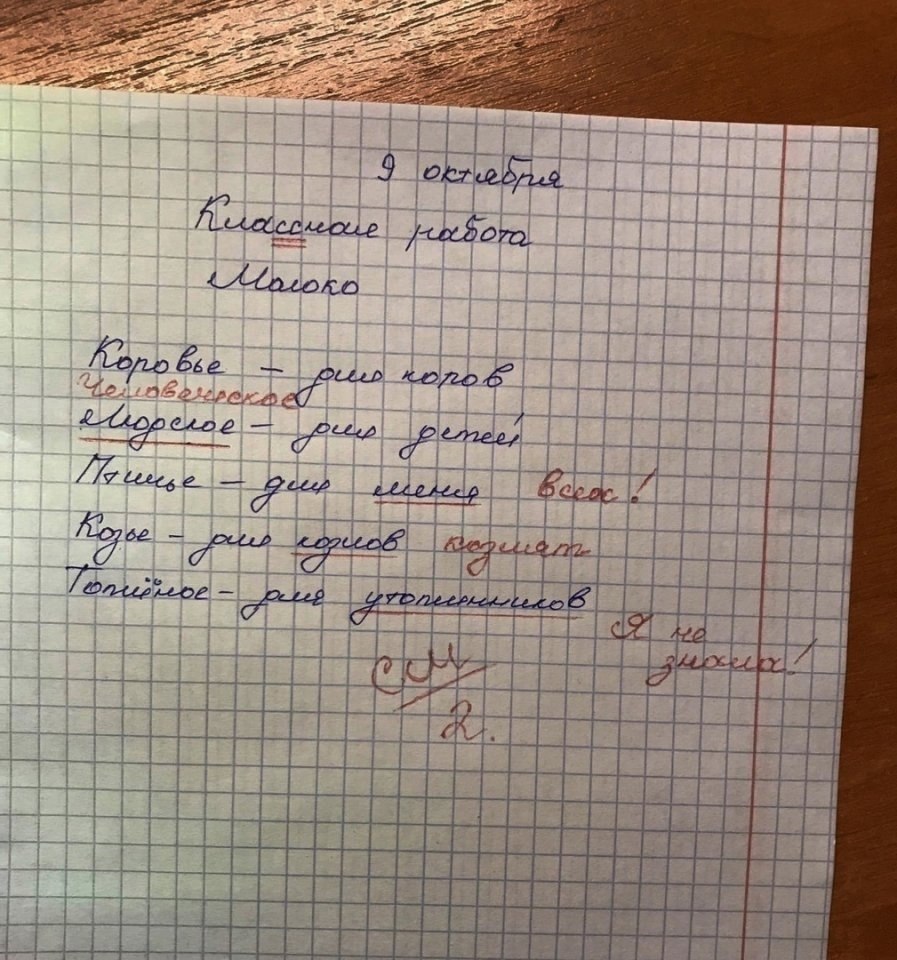 9 октября
Классная работа
Молоко
Коровье – для коров
Человеческое
Людское – для детей
Птичье – для меня всех!
Козье – для козлов козлят
Топлёное – для утопленников
Я не
знала!
см/2.